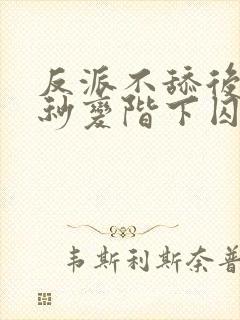 反派不舔後
秒變階下囚
韦斯利斯奈普